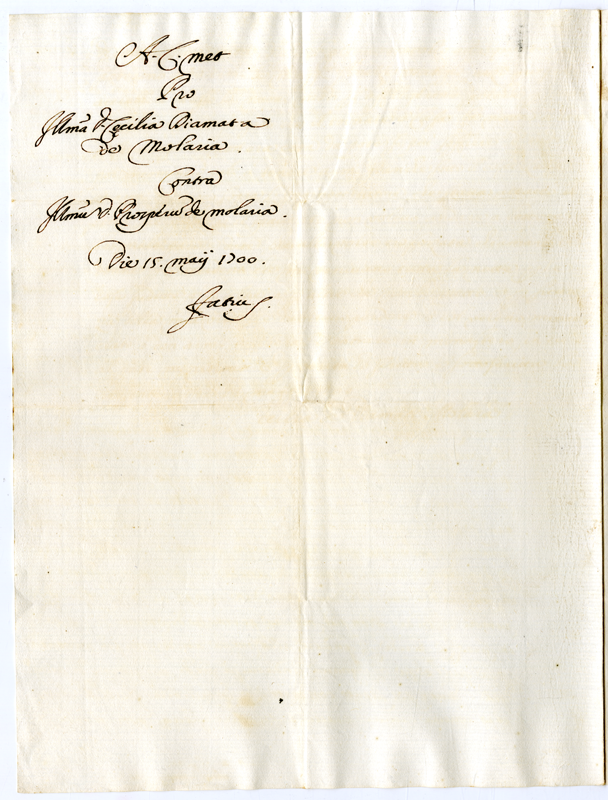 A. C. met
Pro
Illma D. Cecilia Diamata
de Molaria.
Contra
Illmu D. Prosperu de molaria.
Die 15. maij 1700.